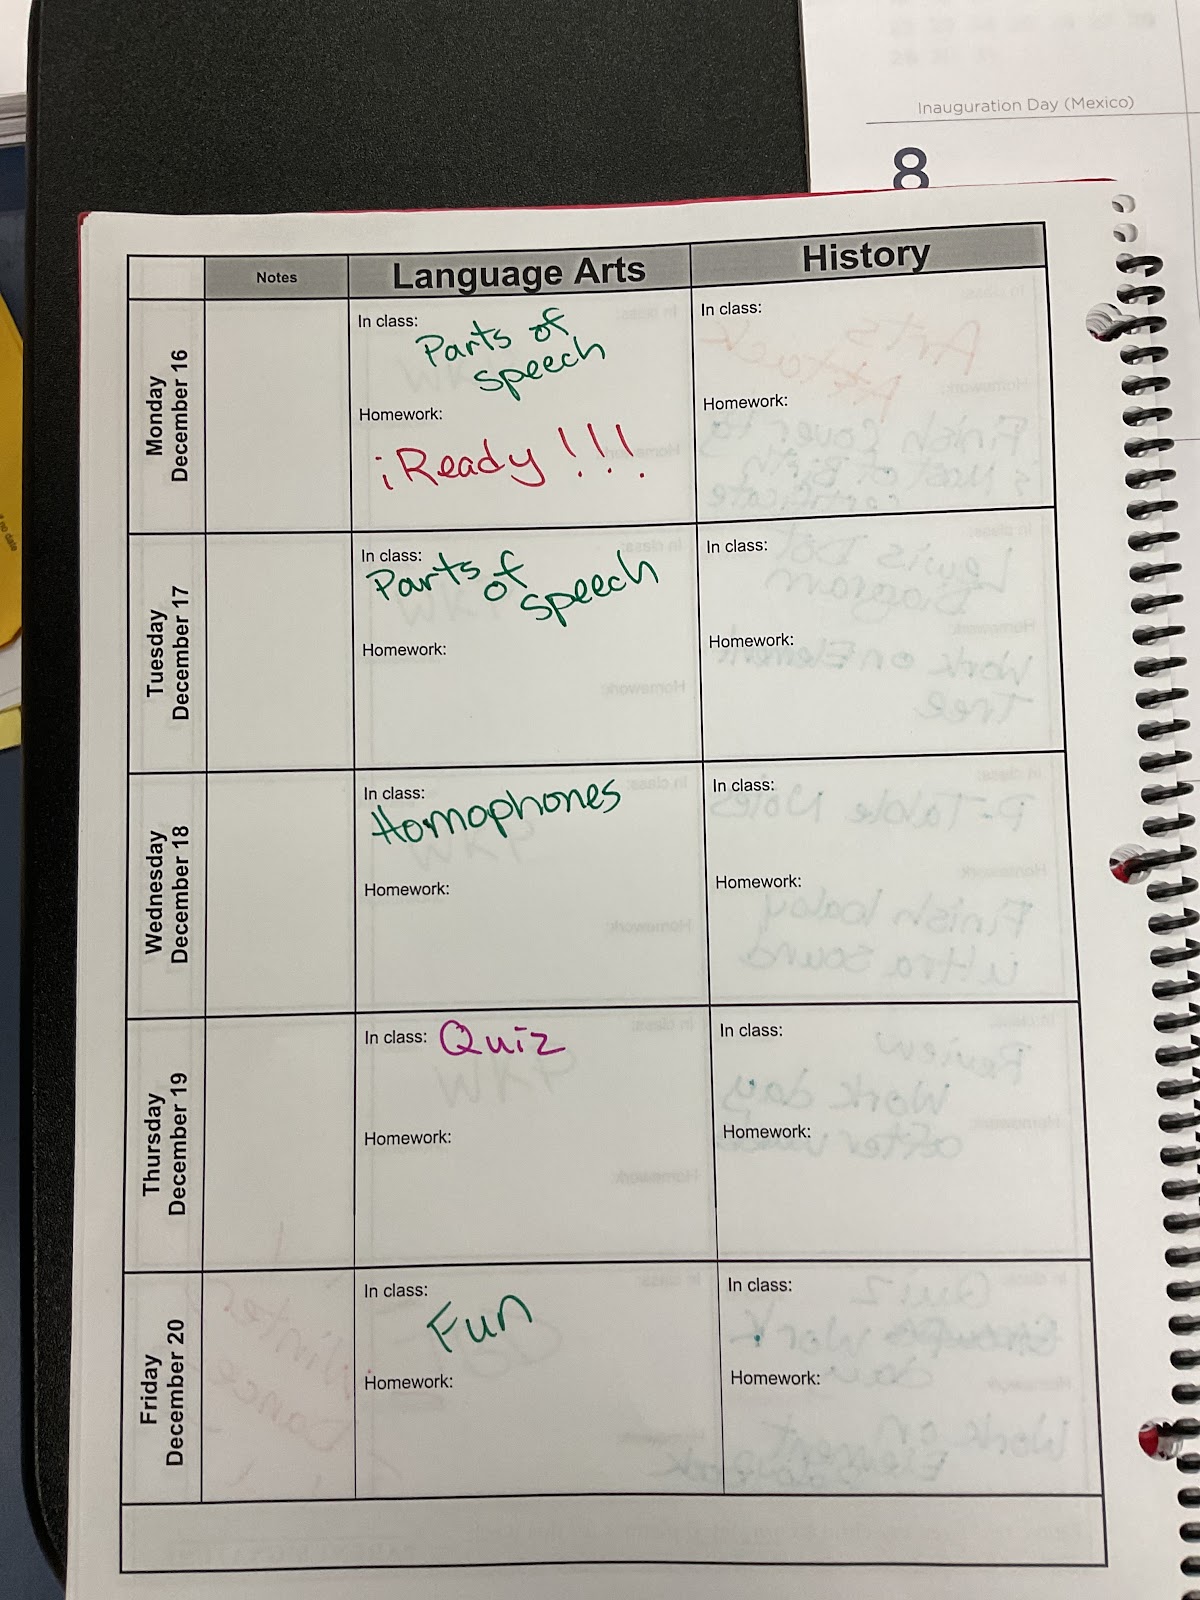 Inauguration Day (Mexico)
8
Notes
Language Arts
History
Monday
December 16
In class:
Parts of
speech
Homework:
iReady!!!
In class:
Homework:
Tuesday
December 17
In class:
Parts of
speech
Homework:
In class:
Homework:
Wednesday
December 18
In class:
Homophones
Homework:
In class:
Homework:
Thursday
December 19
In class: Quiz
Homework:
In class:
Homework:
Friday
December 20
In class:
Fun
Homework:
In class:
Homework: